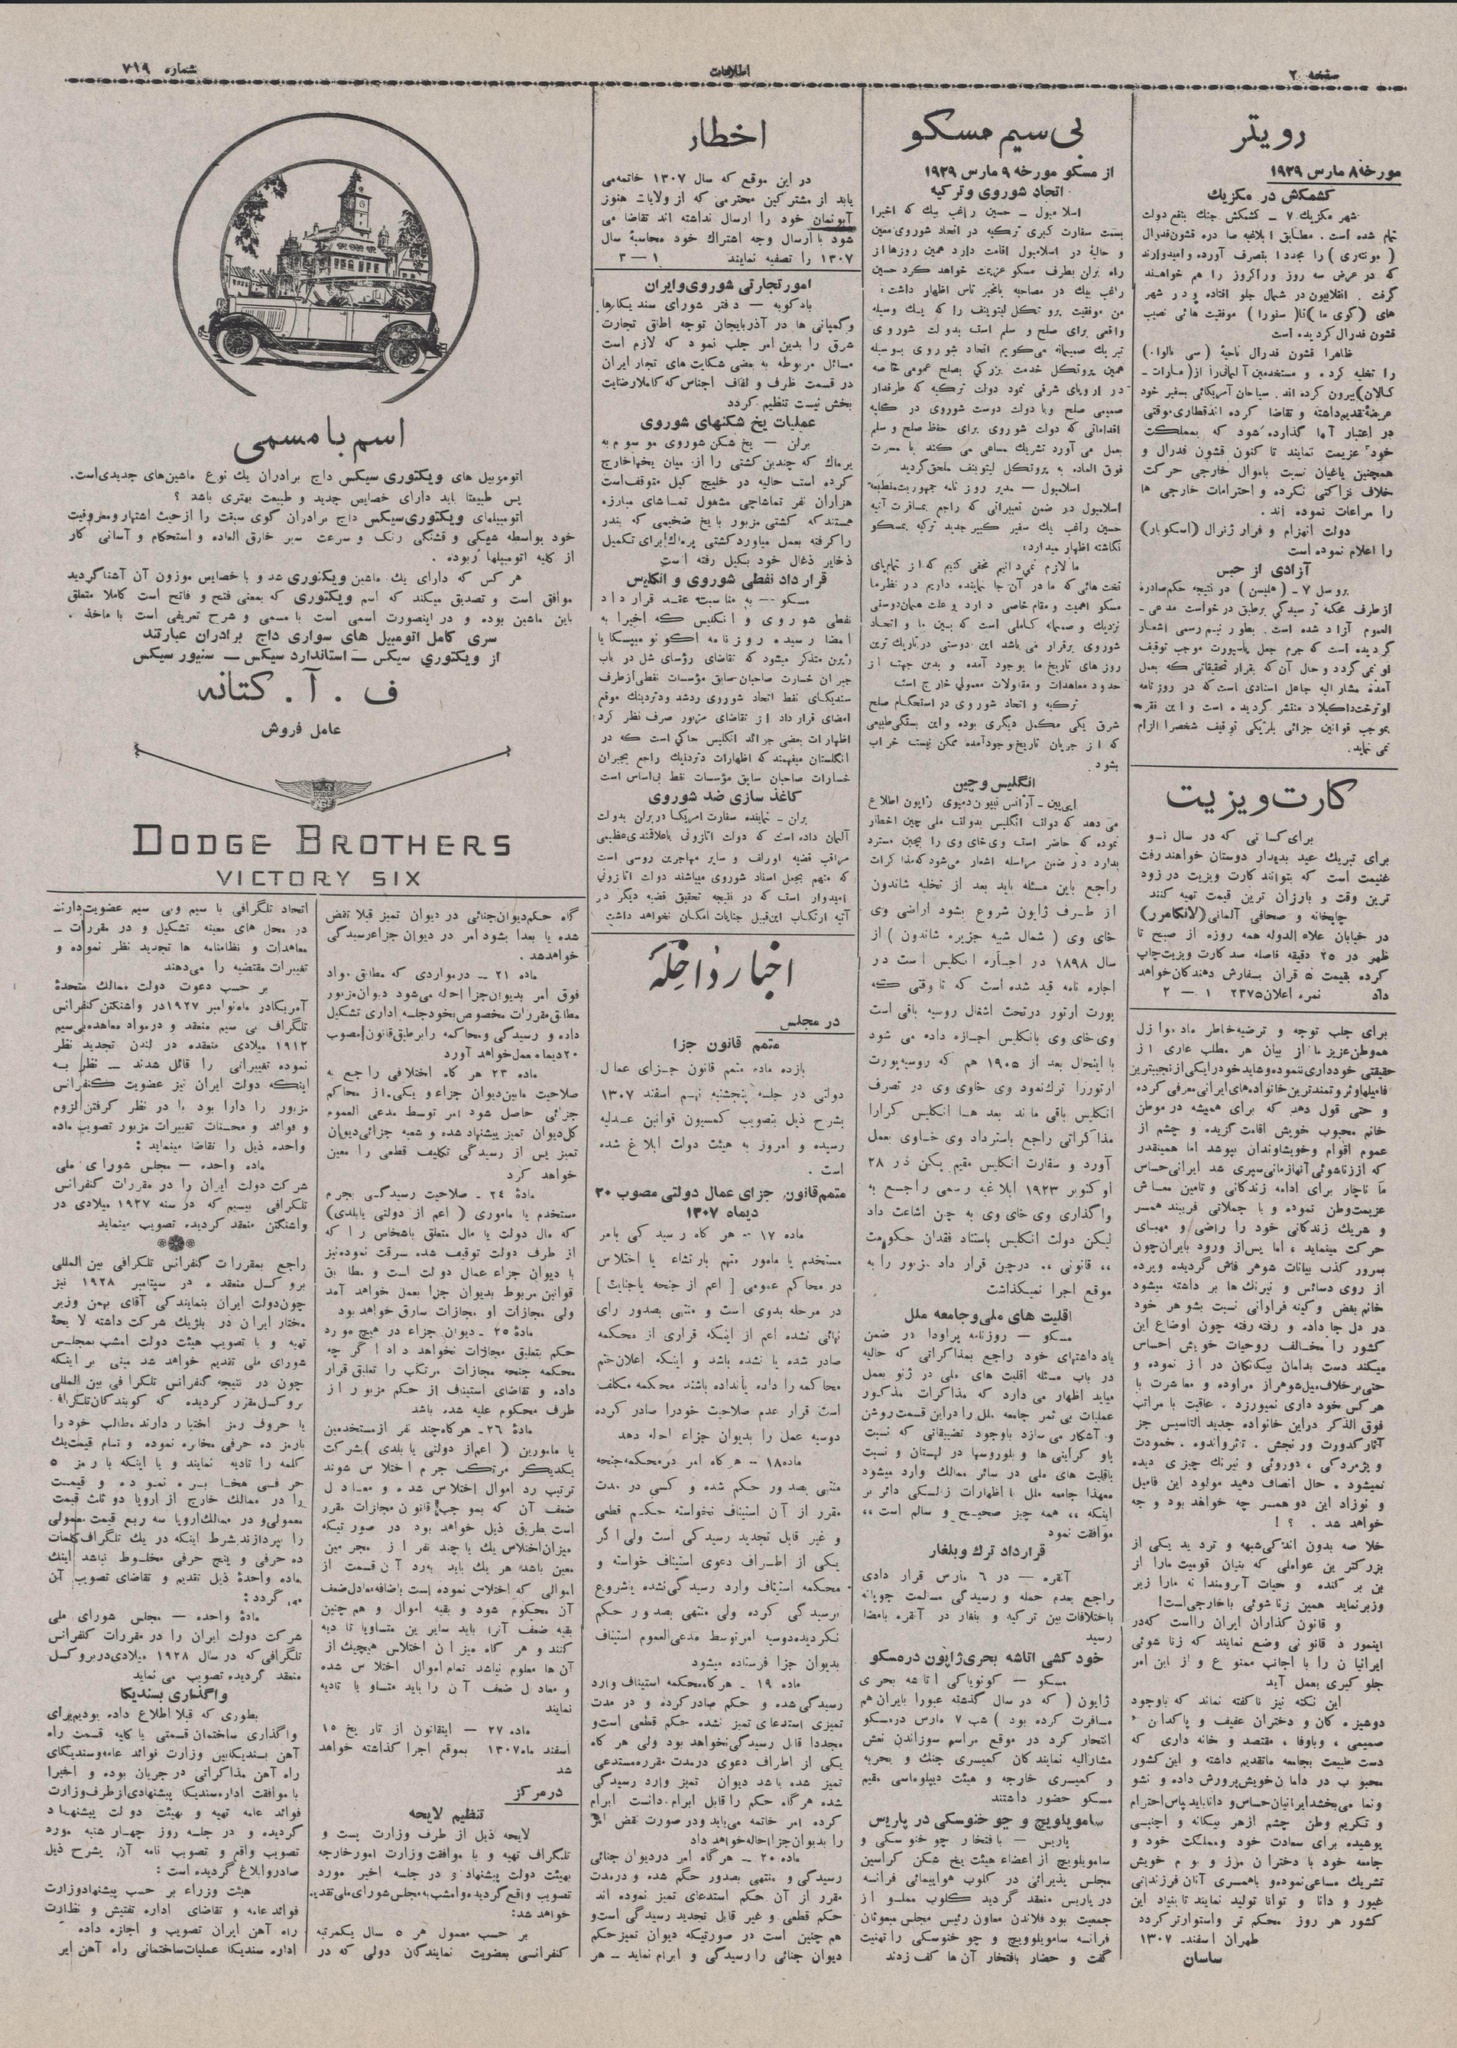 صفحه ۲
اطلاعات
شماره ۷۱۹
رویتر
مورخه ۸ مارس ۱۹۲۹
کشمکش در مکزیك
شهر مکزیك ۷ ـ کشمکش جنك بنفع دولت
تمام شده است. مطابق ابلاغیه صادره قشون فدرال
( مونتری ) را مجددا بتصرف آورده و امیدوارند
که در عرض سه روز وراکروز را هم خواهند
گرفت . انقلابیون در شمال جلو افتاده و در شهر
قشون فدرال گردیده است
ظاهرا قشون فدرال ناحیهٔ
را تخلیه کرده و
کالان) بیرون کرده اند. سیاحان آمریکائی بسفیر خود
عریضهٔ تقدیم داشته و تقاضا کرده اند قطاری موقتی
در اعتبار آنها گذارده شود که بمملکت
خود عزیمت نمایند تا کنون قشون فدرال و
همچنین یاغیان نسبت باموال خارجی حرکت
خلاف نزاکتی نکرده و احترامات خارجی ها
را مراعات نموده اند .
دولت انهزام و فرار ژنرال (اسکوبار)
را اعلام نموده است
آزادی از حبس
از طرف محکمه رسیدگی برطبق درخواست مدعی ـ
العموم آزاد شده است. بطور نیم رسمی اشعار
گردیده است که جرم جعل پاسپورت موجب توقیف
او نمی گردد و حال آن که بقرار تحقیقاتی که بعمل
آمده مشارالیه جاعل اسنادی است که در روزنامه
بموجب قوانین جزائی بلژیکی توقیف شخص را الزام
نمی نماید.
کارت ویزیت
برای کسانی که در سال نو
برای تبریك عید بدیدار دوستان خواهند رفت
غنیمت است که بتوانند کارت ویزیت در زود
ترین وقت و بارزان ترین قیمت تهیه کنند
چاپخانه و صحافی آلمانی
در خیابان علاء الدوله همه روزه از صبح تا
ظهر در ۲۵ دقیقه فاصله صد کارت ویزیت چاپ
کرده بقیمت ۵ قران بسفارش دهندگان خواهد
داد نمره اعلان ۲۳۷۵ ۱ ـ ۲
برای جلب توجه و ترضیه خاطر
هموطن عزیز ما از بیان هر مطلب عاری از
حقیقتی خودداری ننموده و شاید خود را یکی از نجیب ترین
فامیلها و ثروتمند ترین خانواده های ایرانی معرفی کرده
و حتی قول دهد که برای همیشه در موطن
خانم محبوب خویش اقامت گزیده و چشم از
عموم اقوام و خویشاوندان بپوشد اما همینقدر
که از زناشوئی آنها زمانی سپری شد ایرانی حساس
ما ناچار برای ادامه زندگانی و تامین معاش
عزیمت وطن نموده و با جملاتی فریبنده همسر
و شریك زندگانی خود را راضی و مهیای
حرکت مینماید ، اما پس از ورود بایران چون
بمرور کذب بیانات شوهر فاش گردیده و پرده
از روی دسائس و نیرنك ها بر داشته میشود
خانم بغض و کینه فراوانی نسبت بشوهر خود
در دل جا داده و رفته رفته چون اوضاع این
کشور را مخالف روحیات خویش احساس
میکند دست بدامان بیگانگان دراز نموده و
حتی برخلاف میل شوهر از مراوده و معاشرت با
هر کس خود داری نمیورزد . عاقبت با مراتب
فوق الذکر در این خانواده جدید التاسیس جز
آثار کدورت و رنجش . تاثر و اندوه . خمودت
و پژمردگی ، دوروئی و نیرنك چیزی دیده
نمیشود . حال انصاف دهید مولود این فامیل
و نوزاد این دو همسر چه خواهد بود و چه
خواهد شد . ؟ !
خلاصه بدون اندکی شبهه و تردید یکی از
بزرگترین عواملی که بنیان قومیت ما را از
بن بر کنده و حیات آبرومندانه ما را زیر
وزبر نماید همین زناشوئی با خارجی است !
و قانون گذاران ایران راست که در
اینمورد قانونی وضع نمایند که زناشوئی
ایرانیان را با اجانب ممنوع و از این امر
جلو گیری بعمل آید
این نکته نیز ناگفته نماند که باوجود
دوشیزه گان و دختران عفیف و پاکدامن
صمیمی ، و باوفا ، مقتصد و خانه داری که
دست طبیعت بجامعه ما تقدیم داشته و این کشور
محبوب در دامان خویش پرورش داده و نشو
و نما می بخشد ایرانیان حساس و دانا باید پاس احترام
و تکریم وطن چشم از هر بیگانه و اجنبی
پوشیده برای سعادت خود و مملکت خود و
جامعه خود با دختران مرز و بوم خویش
تشریك مساعی نموده و با همسری آنان فرزندانی
غیور و دانا و توانا تولید نمایند تا بنیاد این
کشور هر روز محکم تر و استوار تر گردد
طهران اسفند ـ ۱۳۰۷
ساسان
بی سیم مسکو
از مسکو مورخه ۹ مارس ۱۹۲۹
اتحاد شوروی و ترکیه
اسلامبول ـ حسین راغب بیك که اخیرا
بسمت سفارت کبری ترکیه در اتحاد شوروی معین
و حالیه در اسلامبول اقامت دارد همین روزها از
راه بران بطرف مسکو عزیمت خواهد کرد حسین
راغب بیك در مصاحبه با مخبر تاس اظهار داشت :
من موفقیت پروتکل لیتوینف را که یك وسیله
واقعی برای صلح و سلم است بدولت شوروی
تبریك صمیمانه میگویم اتحاد شوروی بوسیله
همین پروتکل خدمت بزرگی بصلح عمومی خاصه
در اروپای شرقی نمود دولت ترکیه که طرفدار
صمیمی صلح و با دولت دوست شوروی در کلیه
اقداماتی که دولت شوروی برای حفظ صلح و سلم
بعمل می آورد تشریك مساعی می کند با مسرت
فوق العاده به پروتکل لیتوینف ملحق گردید
اسلامبول ـ مدیر روزنامه جمهوریت منطبعه
اسلامبول در ضمن تعبیراتی که راجع بمسافرت آتیه
حسین راغب بیك سفیر کبیر جدید ترکیه بمسکو
نگاشته اظهار میدارد:
ما لازم نمیدانیم مخفی کنیم که از تمام پای
تخت هائی که ما در آن جا نماینده داریم در نظر ما
مسکو اهمیت و مقام خاصی دارد و علت همان دوستی
نزدیك و صمیمانه کاملی است که بین ما و اتحاد
شوروی برقرار می باشد این دوستی در تاریك ترین
روز های تاریخ ما بوجود آمده و بدین جهت از
حدود معاهدات و مقاولات معمولی خارج است
ترکیه و اتحاد شوروی در استحکام صلح
شرق یکی مکمل دیگری بوده و این بستگی طبیعی
که از جریان تاریخ وجود آمده ممکن نیست خراب
بشود
انگلیس و چین
می دهد که دولت انگلیس بدولت ملی چین اخطار
نموده که حاضر است وی خای وی را بچین مسترد
بدارد در ضمن مراسله اشعار می شود که مذاکرات
راجع باین مسئله باید بعد از تخلیه شاندون
از طرف ژاپون شروع بشود اراضی وی
خای وی ( شمال شبه جزیره شاندون ) از
سال ۱۸۹۸ در اجاره انگلیس است در
اجاره نامه قید شده است که تا وقتی که
پورت آرتور در تحت اشغال روسیه باقی است
وی خای وی بانگلیس اجازه داده می شود
با اینحال بعد از ۱۹۰۵ هم که روسیه پورت
ارتور را ترك نمود وی خاوی وی در تصرف
انگلیس باقی ماند بعد ها انگلیس کرارا
مذاکراتی راجع باسترداد وی خاوی بعمل
آورد و سفارت انگلیس مقیم پکن در ۲۸
اوکتوبر ۱۹۲۳ ابلاغیه رسمی راجع به
واگذاری وی خای وی به چن اشاعت داد
لیکن دولت انگلیس باستناد فقدان حکومت
،، قانونی ،، در چن قرار داد مزبور را به
موقع اجرا نمیگذاشت
اقلیت های ملی و جامعه ملل
مسکو ـ روزنامه پراودا در ضمن
یادداشتهای خود راجع بمذاکراتی که حالیه
در باب مسئله اقلیت های ملی در ژنو بعمل
میاید اظهار می دارد که مذاکرات مذکور
عملیات بی ثمر جامعه ملل را در این قسمت روشن
و آشکار می سازد باوجود تضییقاتی که نسبت
باو کراینی ها و بلوروسها در لهستان و نسبت
باقلیت های ملی در سائر ممالك وارد میشود
معهذا جامعه ملل با اظهارات زلسکی دائر بر
اینکه ،، همه چیز صحیح و سالم است ،،
موافقت نمود
قرارداد ترك و بلغار
آنقره ـ در ۶ مارس قرار دادی
راجع بعدم حمله و رسیدگی مسالمت جویانه
باختلافات بین ترکیه و بلغار در آنقره بامضا
رسید
خود کشی اتاشه بحری ژاپون در مسکو
مسکو ـ کونویاکی آتاشه بحری
ژاپون ( که در سال گذشته عبورا بایران هم
مسافرت کرده بود ) شب ۷ مارس در مسکو
انتحار کرد در موقع مراسم سوزاندن نعش
مشارالیه نمایندگان کمیسری جنك و بحریه
و کمیسری خارجه و هیئت دیپلوماسی مقیم
مسکو حضور داشتند
سامویلویچ و چو خنوسکی در پاریس
پاریس ـ بافتخار چو خنوسکی و
سامویلوویچ از اعضاء هیئت یخ شکن کراسین
مجلس پذیرائی در کلوب هواپیمائی فرانسه
در پاریس منعقد گردید کلوب مملو از
جمعیت بود فلاندن معاون رئیس مجلس مبعوثان
فرانسه سامویلوویچ و چو خنوسکی را تهنیت
گفت و حضار بافتخار آن ها کف زدند
اخطار
در این موقع که سال ۱۳۰۷ خاتمه می
یابد از مشترکین محترمی که از ولایات هنوز
آبونمان خود را ارسال نداشته اند تقاضا می
شود با ارسال وجه اشتراك خود محاسبهٔ سال
۱۳۰۷ را تصفیه نمایند ۱ ـ ۳
امور تجارتی شوروی و ایران
بادکوبه ـ دفتر شورای سندیکارها
و کمپانی ها در آذربایجان توجه اطاق تجارت
شرق را بدین امر جلب نمود که لازم است
مسائل مربوطه به بعضی شکایت های تجار ایران
در قسمت ظرف و لفاف اجناس که کاملا رضایت
بخش نیست تنظیم گردد
عملیات یخ شکنهای شوروی
برلن ـ یخ شکن شوروی موسوم به
یرماك که چندین کشتی را از میان یخها خارج
کرده است حالیه در خلیج کیل متوقف است
هزاران نفر تماشاچی مشغول تماشای مبارزه
هستند که کشتی مزبور با یخ ضخیمی که بندر
را گرفته بعمل میاورد کشتی یرماك برای تکمیل
ذخایر ذغال خود بکیل رفته است
قرار داد نفطی شوروی و انگلیس
مسکو ـ به مناسبت عقد قرار داد
نفطی شوروی و انگلیس که اخیرا به
امضا رسیده روزنامه اکونومیسکایا
ژیزن متذکر میشود که تقاضای رؤسای شل در باب
جبران خسارت صاحبان سابق مؤسسات نفطی از طرف
سندیکای نفط اتحاد شوروی رد شد و دتردینك موقع
امضای قرار داد از تقاضای مزبور صرف نظر کرد
اظهارات بعضی جرائد انگلیس حاکی است که در
انگلستان میفهمند که اظهارات دتردینك راجع بجبران
خسارات صاحبان سابق مؤسسات نفط بی اساس است
کاغذ سازی ضد شوروی
بران ـ نماینده سفارت امریکا در بران بدولت
آلمان داده است که دولت اتازونی با علاقمندی عظیمی
مراقب قضیه اورلف و سایر مهاجرین روسی است
که متهم بجعل اسناد شوروی میباشند دولت اتازونی
امیدوار است که در نتیجه تحقیق قضیه دیگر در
آتیه ارتکاب این قبیل جنایات امکان نخواهد داشت
اخبار داخله
در مجلس
متمم قانون جزا
یازده ماده متمم قانون جزای عمال
دولتی در جلسه پنجشنبه نهم اسفند ۱۳۰۷
بشرح ذیل بتصویب کمسیون قوانین عدلیه
رسیده و امروز به هیئت دولت ابلاغ شده
است .
متمم قانون جزای عمال دولتی مصوب ۲۰
دیماه ۱۳۰۷
ماده ۱۷ ـ هر گاه رسیدگی بامر
مستخدم یا مامور متهم بارتشاء یا اختلاس
در محاکم عمومی [ اعم از جنحه یا جنایت ]
در مرحله بدوی است و منتهی بصدور رای
نهائی نشده اعم از اینکه قراری از محکمه
صادر شده یا نشده باشد و اینکه اعلان ختم
محاکمه را داده یا نداده باشند محکمه مکلف
است قرار عدم صلاحیت خود را صادر کرده
دوسیه عمل را بدیوان جزاء احاله دهد
ماده ۱۸ ـ هر گاه امر در محکمه جنحه
منتهی بصدور حکم شده و کسی در مدت
مقرر از آن استیناف نخواسته حکم قطعی
و غیر قابل تجدید رسیدگی است ولی اگر
یکی از اطراف دعوی استیناف خواسته و
محکمه استیناف وارد رسیدگی نشده یا شروع
برسیدگی کرده ولی منتهی بصدور حکم
نگردیده دوسیه امر توسط مدعی العموم استیناف
بدیوان جزا فرستاده میشود
ماده ۱۹ ـ هر گاه محکمه استیناف وارد
رسیدگی شده و حکم صادر کرده و در مدت
تمیزی استدعای تمیز نشده حکم قطعی است و
مجددا قابل رسیدگی نخواهد بود ولی هر گاه
یکی از اطراف دعوی در مدت مقرره مستدعی
تمیز شده باشد دیوان تمیز وارد رسیدگی
شده هر گاه حکم را قابل ابرام دانست ابرام
کرده امر خاتمه می یابد و در صورت نقض امر
را بدیوان جزا احاله خواهد داد
ماده ۲۰ ـ هر گاه امر در دیوان جنائی
رسیدگی و منتهی بصدور حکم شده و در مدت
مقرر از آن حکم استدعای تمیز نموده اند
حکم قطعی و غیر قابل تجدید رسیدگی است و
هم چنین است در صورتیکه دیوان تمیز حکم
دیوان جنائی را رسیدگی و ابرام نماید ـ هر
اسم با مسمی
اتومبیل های ویکتوری سیکس داج برادران یك نوع ماشین های جدیدی است.
پس طبیعتا باید دارای خصایص جدید و طبیعت بهتری باشد ؟
اتومبیلهای ویکتوری سیکس داج برادران گوی سبقت را از حیث اشتهار و معروفیت
خود بواسطه شیکی و قشنگی رنك و سرعت سیر خارق العاده و استحکام و آسانی کار
از کلیه اتومبیلها ربوده .
هر کس که دارای یك ماشین ویکتوری شد و با خصایص موزون آن آشنا گردید
موافق است و تصدیق میکند که اسم ویکتوری که بمعنی فتح و فاتح است کاملا متعلق
باین ماشین بوده و در اینصورت اسمی است با مسمی و شرح تعریفی است با ماخذ .
سری کامل اتومبیل های سواری داج برادران عبارتند
از ویکتوری سیکس ـ استاندارد سیکس ـ سنیور سیکس
ف . آ . کتانه
عامل فروش
DODGE BROTHERS
VICTORY SIX
گاه حکم دیوان جنائی در دیوان تمیز قبلا نقض
شده یا بعدا بشود امر در دیوان جزاء رسیدگی
خواهد شد .
ماده ۲۱ ـ در مواردی که مطابق مواد
فوق امر بدیوان جزا احاله می شود دیوان مزبور
مطابق مقررات مخصوص بخود جلسه اداری تشکیل
داده و رسیدگی و محاکمه را بر طبق قانون مصوب
۲۰ دیماه بعمل خواهد آورد
ماده ۲۳ هر گاه اختلافی راجع به
صلاحیت مابین دیوان جزاء و یکی از محاکم
جزائی حاصل شود امر توسط مدعی العموم
کل دیوان تمیز پیشنهاد شده و شعبه جزائی دیوان
تمیز پس از رسیدگی تکلیف قطعی را معین
خواهد کرد
مادهٔ ۲۴ ـ صلاحیت رسیدگی بجرم
مستخدم یا ماموری ( اعم از دولتی یا بلدی )
که مال دولت یا مال متعلق باشخاص را که
از طرف دولت توقیف شده سرقت نموده نیز
با دیوان جزاء عمال دولت است و مطابق
قوانین مربوط بدیوان جزا بعمل خواهد آمد
ولی مجازات او مجازات سارق خواهد بود
مادهٔ ۲۵ ـ دیوان جزاء در هیچ مورد
حکم بتعلیق مجازات نخواهد داد اگر چه
محکمه جنحه مجازات مرتکب را تعلیق قرار
داده و تقاضای استیناف از حکم مزبور از
طرف محکوم علیه شده باشد
ماده ۲۶ ـ هر گاه چند نفر از مستخدمین
یا مامورین ( اعم از دولتی یا بلدی ) بشرکت
یکدیگر مرتکب جرم اختلاس شوند
ترتیب رد اموال اختلاس شده و معادل
ضعف آن که بموجب قانون مجازات مقرر
است بطریق ذیل خواهد بود در صورتیکه
میزان اختلاس یك یا چند نفر از مجرمین
معین باشد هر یك باید برد آن قسمت از
اموالی که اختلاس نموده است باضافه معادل ضعف
آن محکوم شود و بقیه اموال و هم چنین
بقیه ضعف آنرا باید سایرین متساویا تادیه
کنند و هر گاه میزان اختلاس هیچیك از
آن ها معلوم نباشد تمام اموال اختلاس شده
و معادل ضعف آن را باید متساویا تادیه
نمایند
ماده ۲۷ ـ اینقانون از تاریخ ۱۵
اسفند ماه ۱۳۰۷ بموقع اجرا گذاشته خواهد
شد
در مرکز
تنظیم لایحه
لایحه ذیل از طرف وزارت پست و
تلگراف تهیه و با موافقت وزارت امور خارجه
بهیئت دولت پیشنهاد و در جلسه اخیر مورد
تصویب واقع گردید و امشب به مجلس شورای ملی تقدیم
خواهد شد:
بر حسب معمول هر ۵ سال یکمرتبه
کنفرانسی بعضویت نمایندگان دولی که در
اتحاد تلگرافی با سیم و بی سیم عضویت دارند
در محل های معینه تشکیل و در مقررات ـ
معاهدات و نظامنامه ها تجدید نظر نموده و
تغییرات مقتضیه را می دهند
بر حسب دعوت دولت ممالك متحدهٔ
آمریکا در ماه نوامبر ۱۹۲۷ در واشنگتن کنفرانس
تلگراف بی سیم منعقد و در مواد معاهده بی سیم
۱۹۱۲ میلادی منعقده در لندن تجدید نظر
نموده تغییراتی را قائل شدند ـ نظر به
اینکه دولت ایران نیز عضویت کنفرانس
مزبور را دارا بود با در نظر گرفتن لزوم
و فوائد و محسنات تغییرات مزبور تصویب ماده
واحده ذیل را تقاضا مینماید :
ماده واحده ـ مجلس شورای ملی
شرکت دولت ایران را در مقررات کنفرانس
تلگرافی بیسیم که در سنه ۱۹۲۷ میلادی در
واشنگتن منعقد گردیده تصویب مینماید
راجع بمقررات کنفرانس تلگرافی بین المللی
بروکسل منعقده در سپتامبر ۱۹۲۸ نیز
چون دولت ایران بنمایندگی آقای بهمن وزیر
مختار ایران در بلژیك شرکت داشته لایحهٔ
تهیه و با تصویب هیئت دولت امشب بمجلس
شورای ملی تقدیم خواهد شد مبنی بر اینکه
چون در نتیجه کنفرانس تلگرافی بین المللی
بروکسل مقرر گردیده که گویندگان تلگراف
با حروف رمز اختیار دارند مطالب خود را
بارمز ده حرفی مخابره نموده و تمام قیمت یك
کلمه را تادیه نمایند و یا اینکه با رمز ۵
حرفی مخابره نموده و قیمت
را در ممالك خارج از اروپا دو ثلث قیمت
معمولی و در ممالك اروپا سه ربع قیمت معمولی
را بپردازند بشرط اینکه در یك تلگراف کلمات
ده حرفی و پنج حرفی مخلوط نباشد اینك
ماده واحدهٔ ذیل تقدیم و تقاضای تصویب آن
می گردد :
مادهٔ واحده ـ مجلس شورای ملی
شرکت دولت ایران را در مقررات کنفرانس
تلگرافی که در سال ۱۹۲۸ میلادی در بروکسل
منعقد گردیده تصویب می نماید
واگذاری بسندیکا
بطوری که قبلا اطلاع داده بودیم برای
واگذاری ساختمان قسمتی یا کلیه قسمت راه
آهن بسندیکا بین وزارت فوائد عامه و سندیکای
راه آهن مذاکراتی در جریان بوده و اخیرا
با موافقت اداره سندیکا پیشنهادی از طرف وزارت
فوائد عامه تهیه و بهیئت دولت پیشنهاد
گردیده و در جلسه روز چهار شنبه مورد
تصویب واقع و تصویب نامه آن بشرح ذیل
صادر و ابلاغ گردیده است :
هیئت وزراء بر حسب پیشنهاد وزارت
فوائد عامه و تقاضای اداره تفتیش و نظارت
راه آهن ایران تصویب و اجازه داده
اداره سندیکا عملیات ساختمانی راه آهن ایر